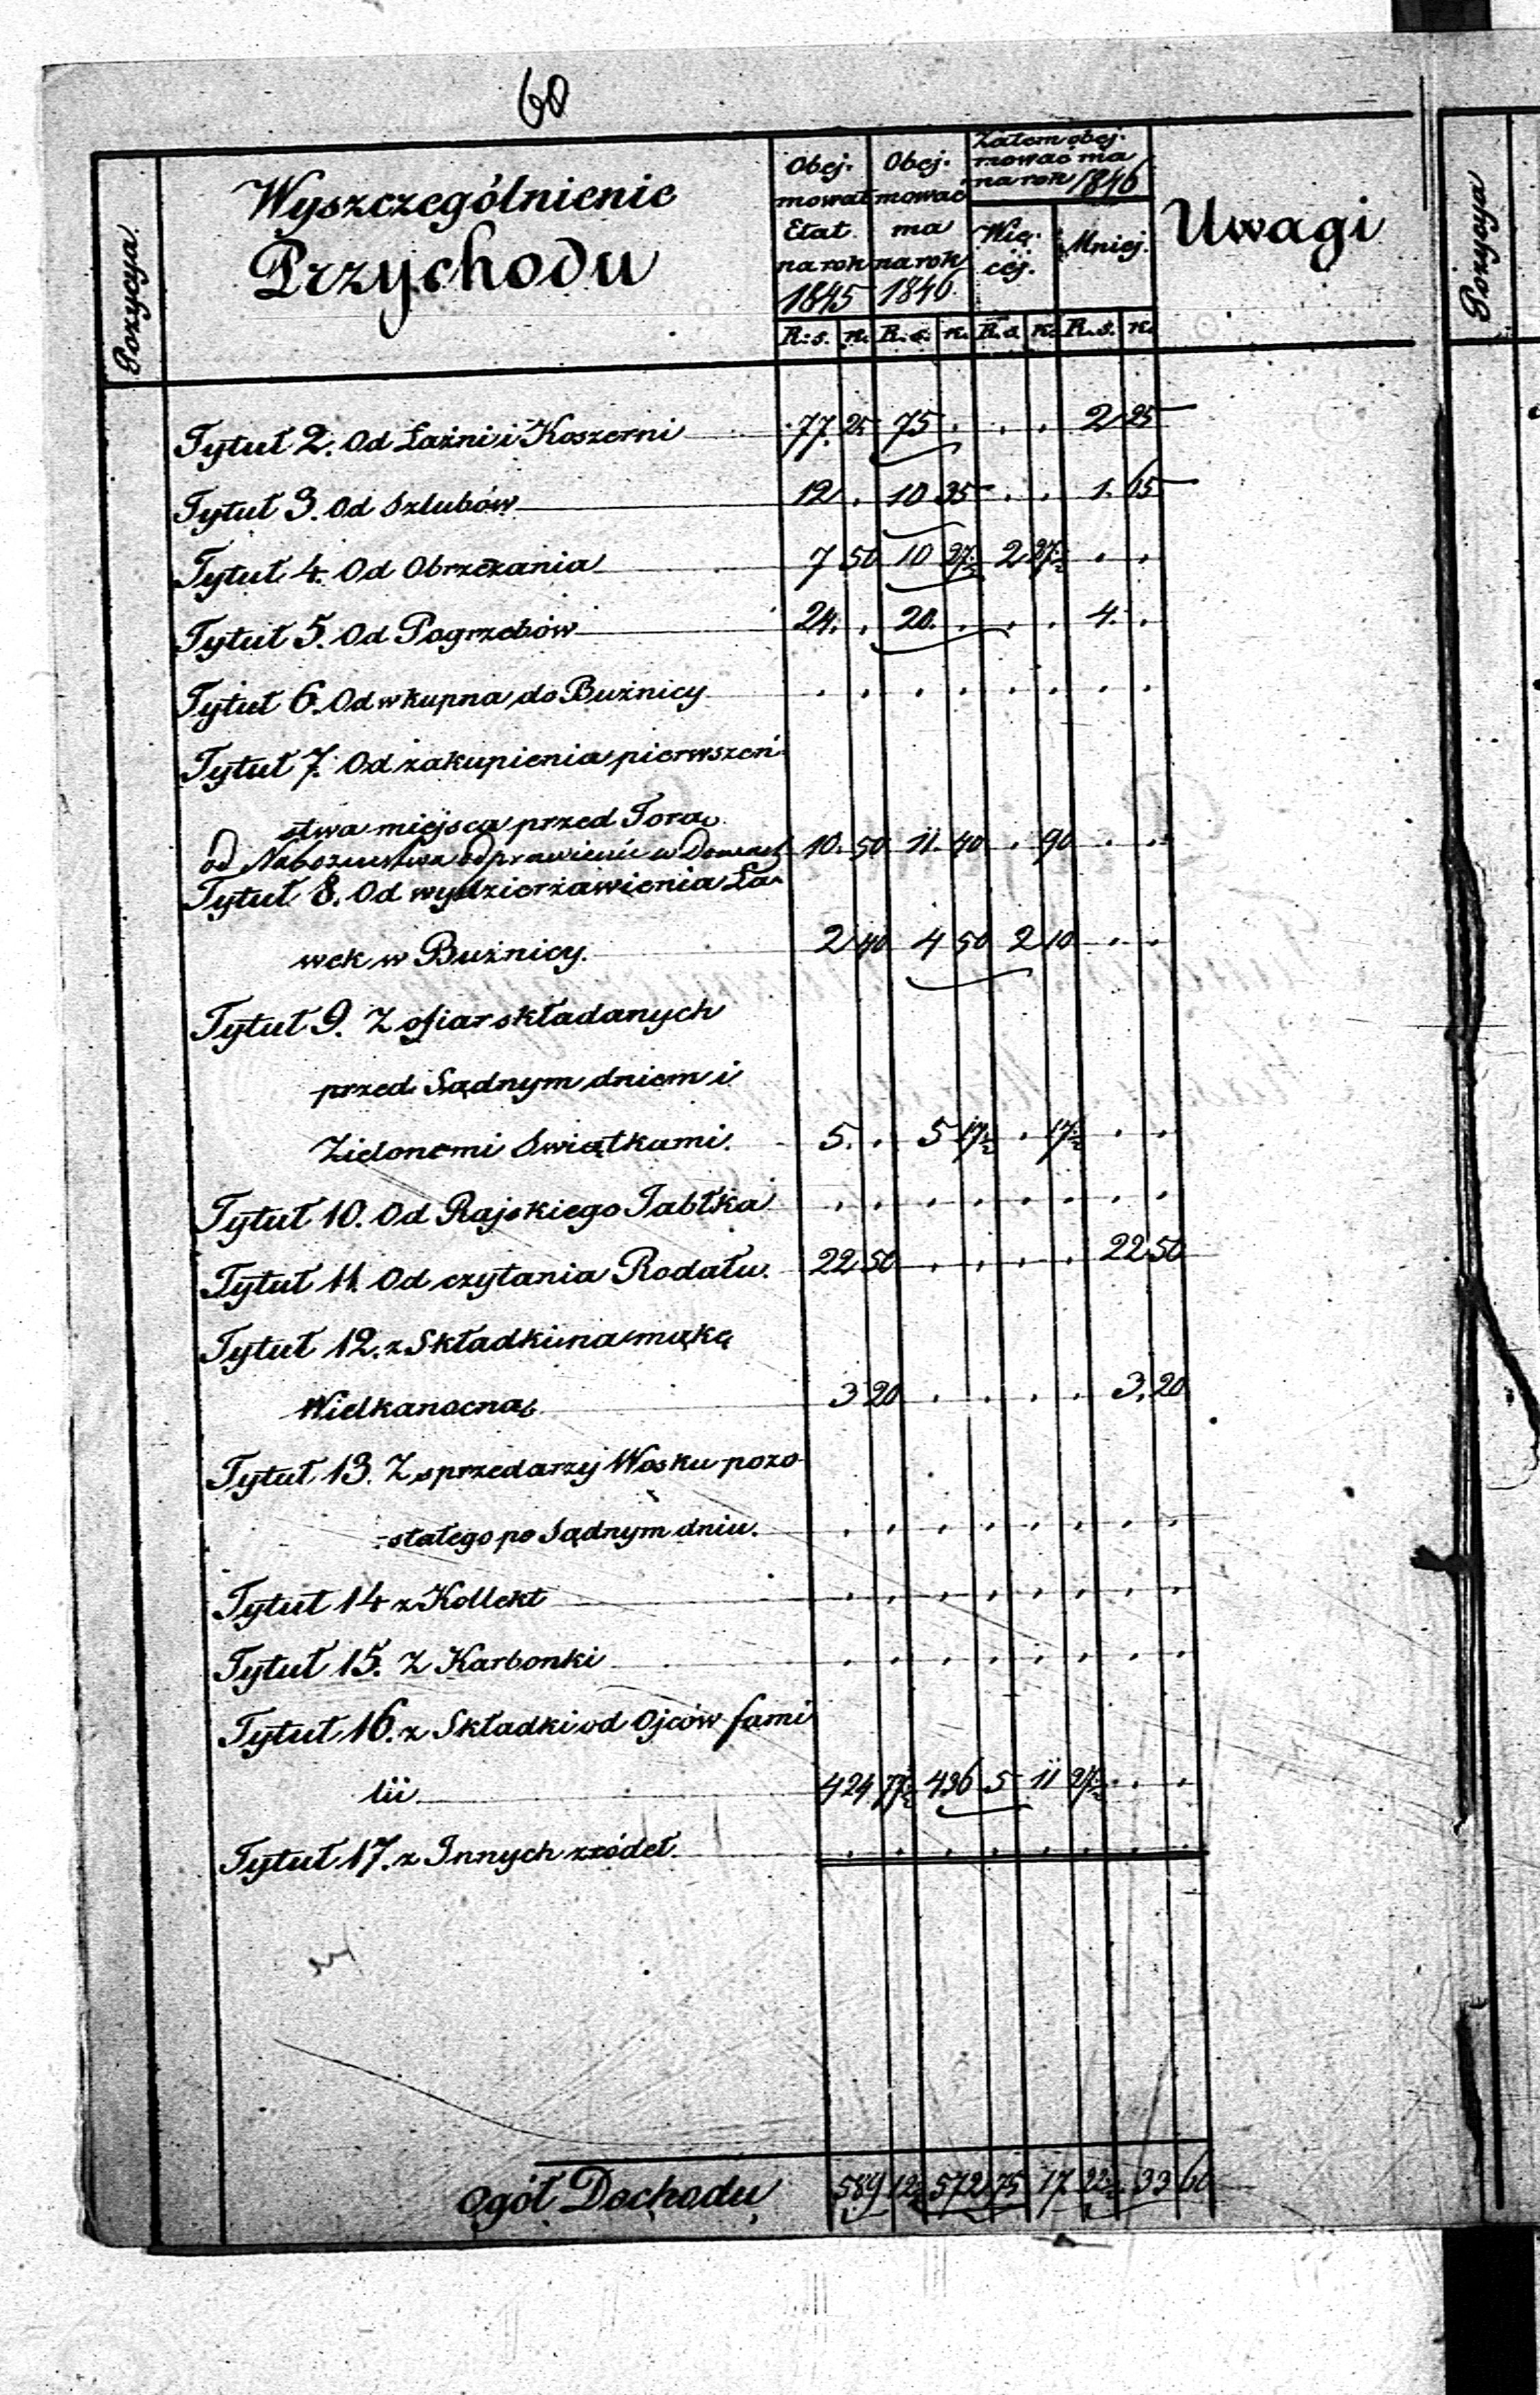 60
Pozycya.
Wyszczególnienie
Przychodu
Obej-
mował
Etat
na rok
1845
Obej-
mować
ma
na rok
1846.
Zatem obej-
mować ma
na rok 1846
Wię-
céj.
Mniej.
Uwagi
R:s. k. R:s. k. R.s. k. R.s. k.
Pozycya
Tytuł 2. Od Łaźni i Koszerni 77. 25 75 . . . 2 25
Tytuł 3. Od Szlubów 12 . 10 35 . . 1. 65
Tytuł 4. Od Obrzezania 7 50 10 27½ 2 27½ . .
Tytuł 5. Od Pogrzebów 24. . 20. . . . 4. .
Tytuł 6. Od wkupna do Bużnicy . . . . . . . .
Tytuł 7. Od zakupienia pierwszeń-
stwa miejsca przed Torą
od Nabożeństwa odprawienie w Domach 10. 50 11. 40 . 90 . .
Tytuł 8. Od wydzierżawienia Ła-
wek w Bużnicy. 2 40 4 50 2 10 . .
Tytuł 9. Z ofiar składanych
przed Sądnym dniem i
Zielonemi Swiątkami. 5. . 5 17½ . 17½ . .
Tytuł 10. Od Rajskiego Jabłka . . . . . . . .
Tytuł 11. Od czytania Rodału. 22 50 . . . . 22 50
Tytuł 12. z Składki na mąkę
Wielkanocną 3 20 . . . . 3. 20
Tytuł 13. Z sprzedarzy Wosku pozo-
-stałego po Sądnym dniu. . . . . . . . .
Tytuł 14 z Kollekt . . . . . . . .
Tytuł 15. Z Karbonki . . . . . . . .
Tytuł 16. z Składki od Ojców fami
lii 424 77½ 436 5 11 27½ . .
Tytuł 17. z Innych zródeł . . . . . . . .
Ogół Dochodu 589 12½ 572 75 17 22½ 33 60